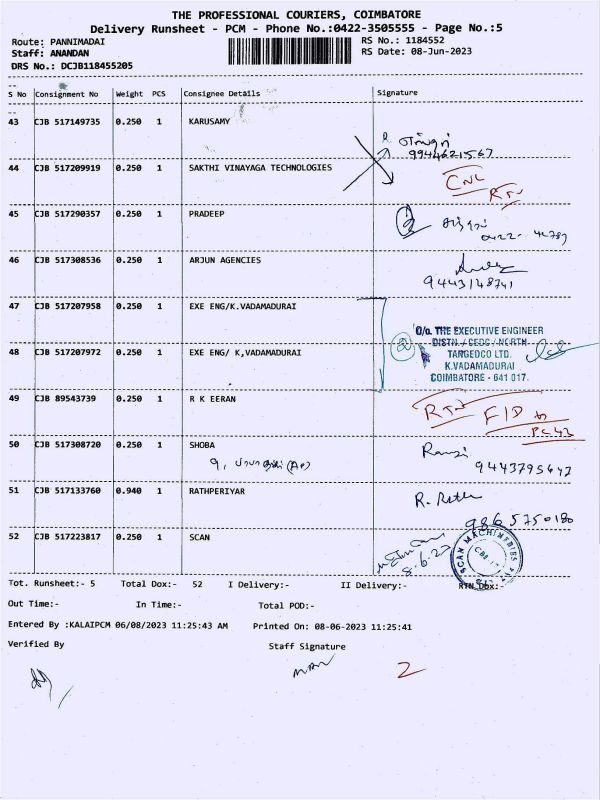 THE PROFESSIONAL COURIERS, COIMBATORE
Delivery Runsheet - PCM - Phone No.:0422-3505555 - Page No.:5
Route: PANNIMADAI
RS No.: 1184552
Staff: ANANDAN
RS Date: 08-Jun-2023
DRS No.: DCJB118455205
S No Consignment No Weight PCS Consignee Details Signature
43 CJB 517149735 0.250 1 KARUSAMY
9944621567
44 CJB 517209919 0.250 1 SAKTHI VINAYAGA TECHNOLOGIES
CNL
RTN
45 CJB 517290357 0.250 1 PRADEEP
46 CJB 517308536 0.250 1 ARJUN AGENCIES
9443148741
47 CJB 517207958 0.250 1 EXE ENG/K.VADAMADURAI
O/o. THE EXECUTIVE ENGINEER
DISTN. / CEDC / NORTH
48 CJB 517207972 0.250 1 EXE ENG/ K,VADAMADURAI
TANGEDCO LTD.
K.VADAMADURAI
COIMBATORE - 641 017.
49 CJB 89543739 0.250 1 R K EERAN
RTN FID to
50 CJB 517308720 0.250 1 SHOBA
51 CJB 517133760 0.940 1 RATHPERIYAR
R. Rath
9865750180
52 CJB 517223817 0.250 1 SCAN
8.6.23
SCAN MACHINERIES
Tot. Runsheet:- 5 Total Dox:- 52 I Delivery:- II Delivery:- RTN Dox:-
Out Time:- In Time:- Total POD:-
Entered By :KALAIPCM 06/08/2023 11:25:43 AM Printed On: 08-06-2023 11:25:41
Verified By Staff Signature
2